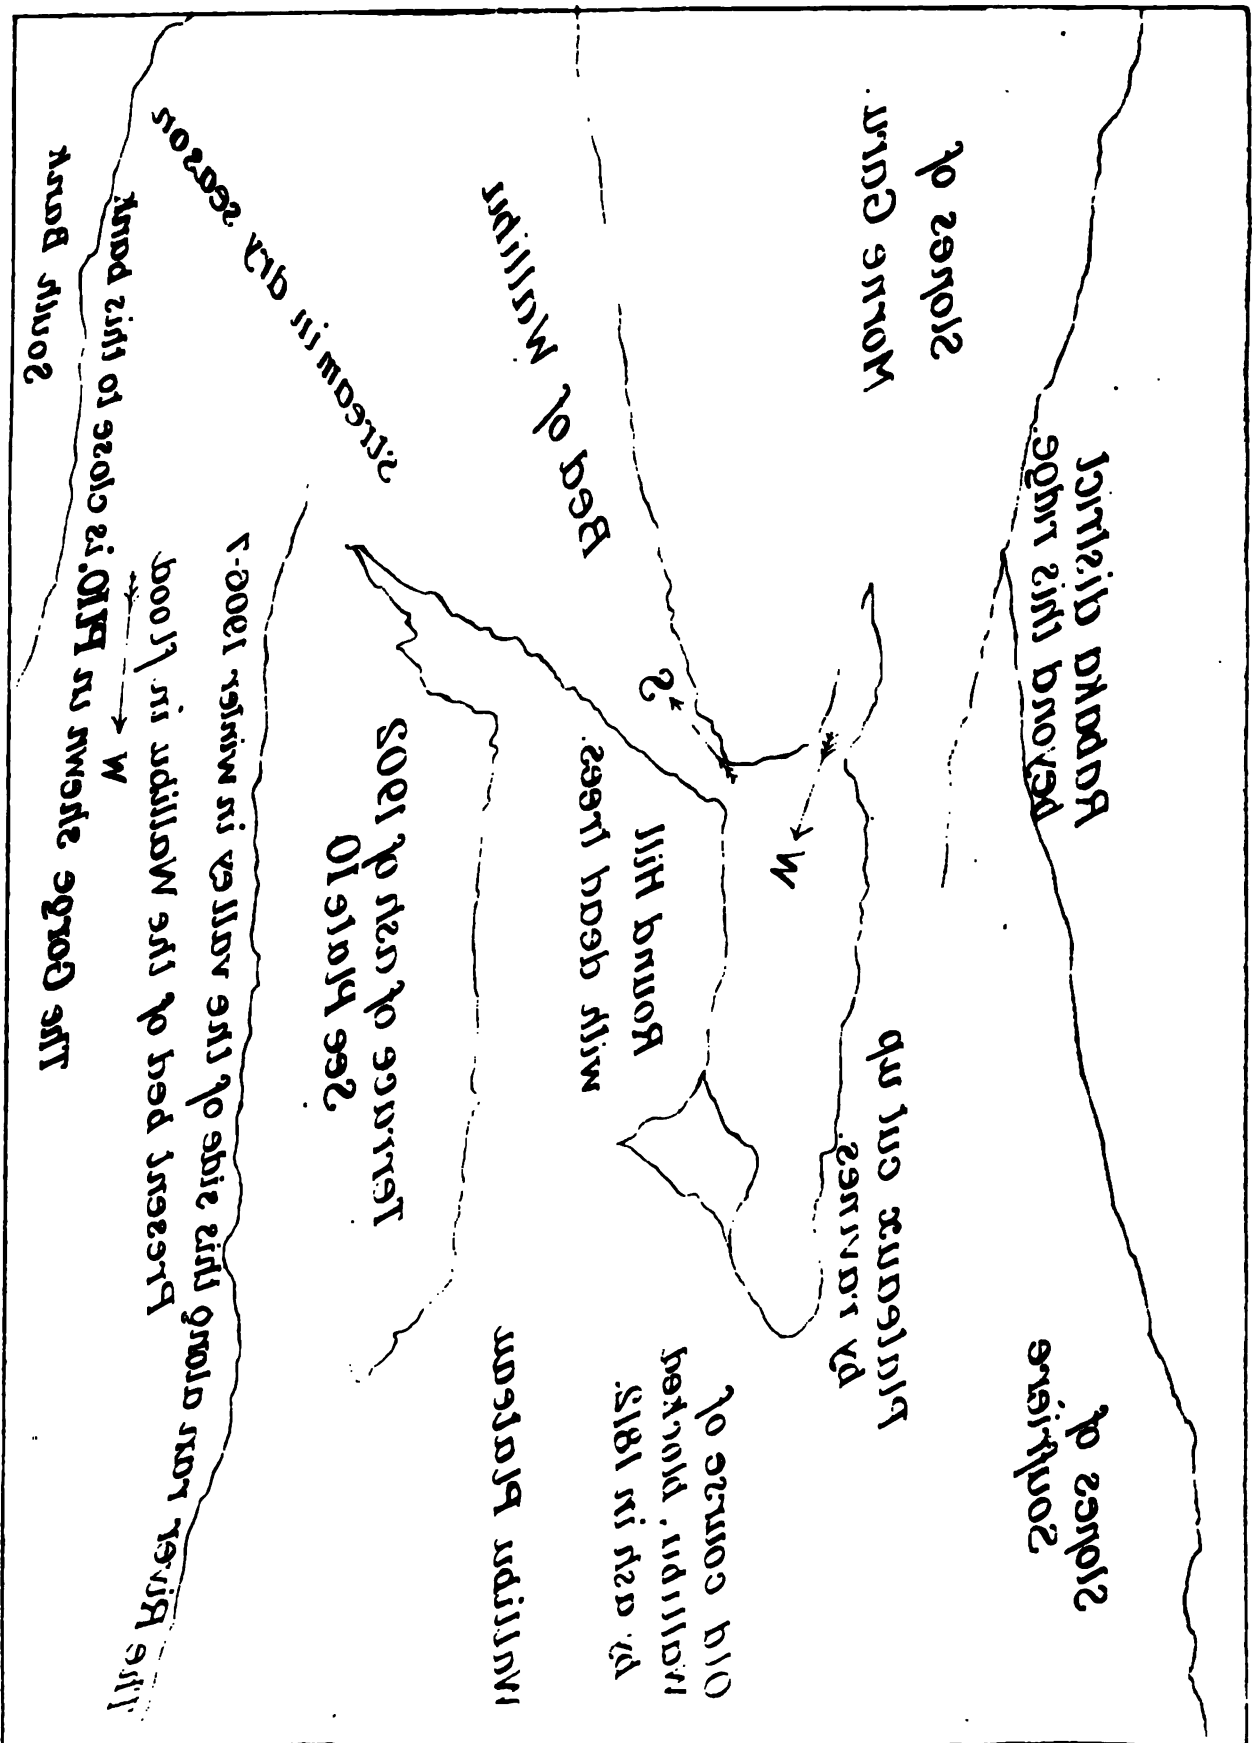 Slopes of
Soufrière
Rabaka district
beyond this ridge.
Slopes of
Morne Garu.
Plateaux cut up
by ravines.
W
S
Old course of
Wallibu, blocked
by ash in 1812.
Round Hill
with dead trees.
Bed of Wallibu
Wallibu Plateau
Terrace of ash of 1902
See Plate 10
stream in dry season
The River ran along this side of the valley in winter 1906-7
Present bed of the Wallibu in flood
W
The Gorge shewn in Pl.10. is close to this bank
South Bank